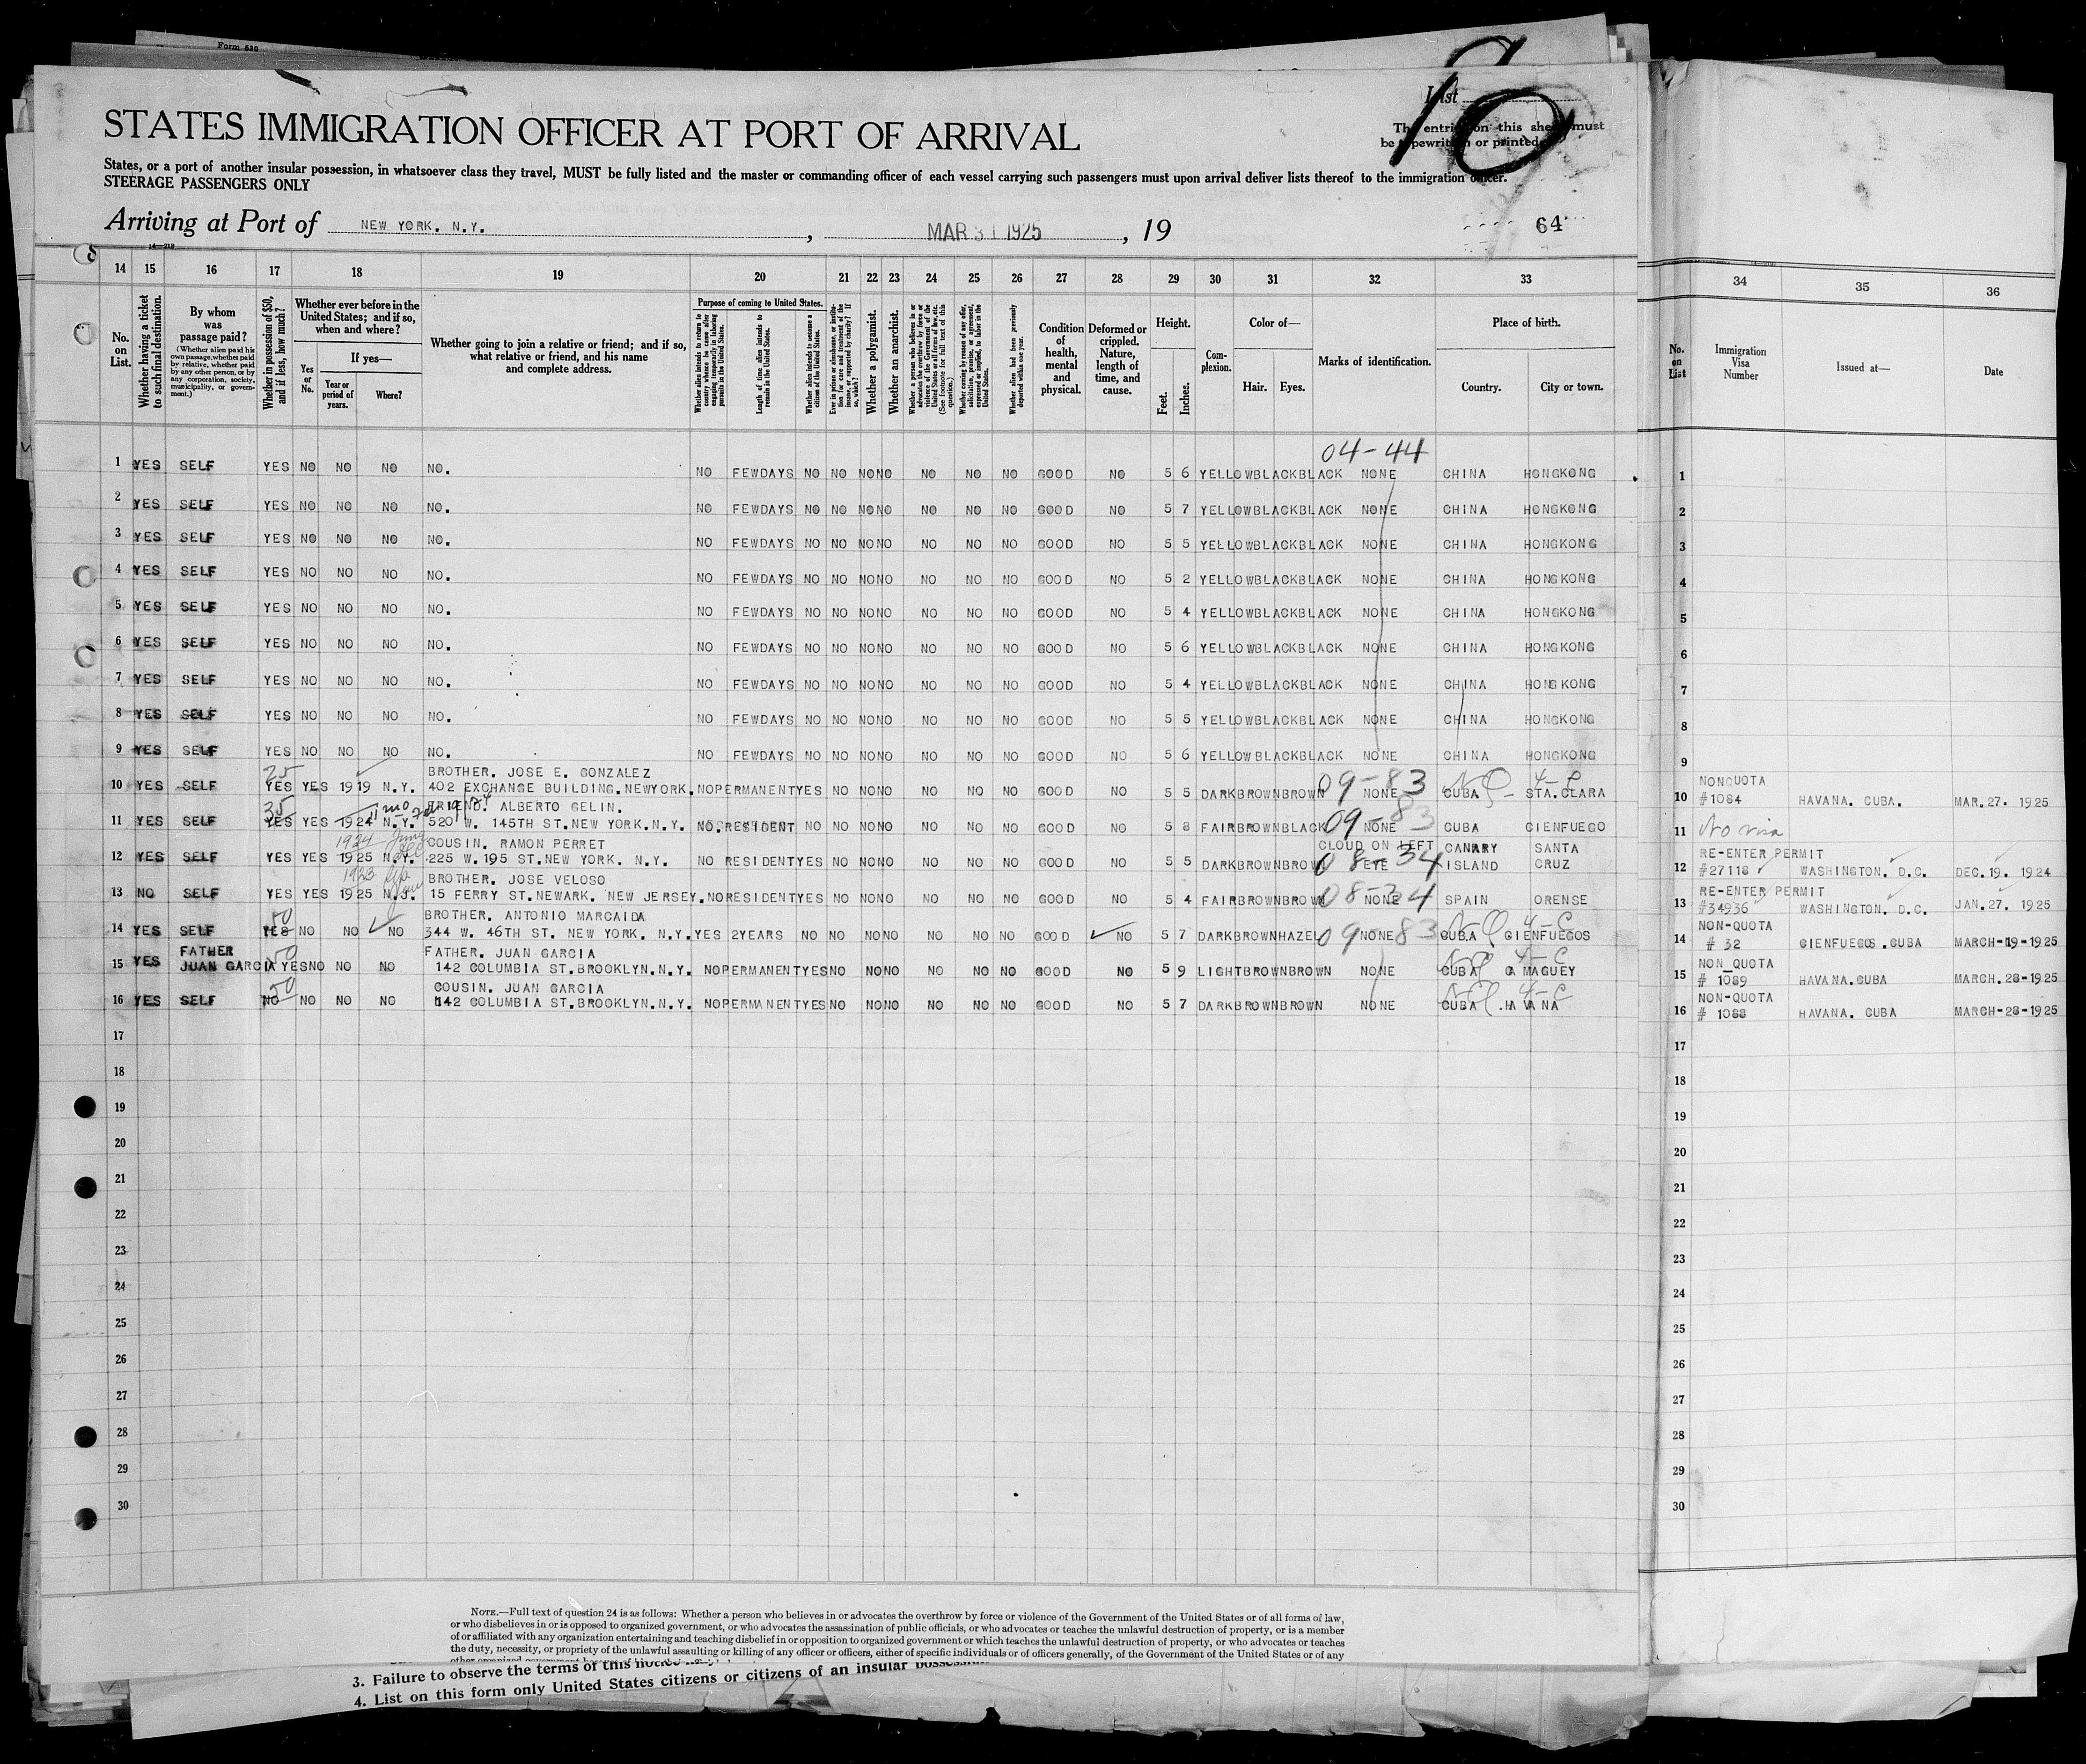 Form 630
10
List
STATES IMMIGRATION OFFICER AT PORT OF ARRIVAL
The entries on this sheet must
be typewritten or printed.
States, or a port of another insular possession, in whatsoever class they travel, MUST be fully listed and the master or commanding officer of each vessel carrying such passengers must upon arrival deliver lists thereof to the immigration officer.
STEERAGE PASSENGERS ONLY
Arriving at Port of NEW YORK. N.Y. , MAR 31 1925 , 19
64
14 15 16 17 18 19 20 21 22 23 24 25 26 27 28 29 30 31 32 33 34 35 36
No. on List.
Whether having a ticket to such final destination.
By whom was passage paid?
(Whether alien paid his own passage, whether paid by relative, whether paid by any other person, or by any corporation, society, municipality, or government.)
Whether in possession of $50, and if less, how much?
Whether ever before in the United States; and if so, when and where?
Yes or No.
If yes—
Year or period of years.
Where?
Whether going to join a relative or friend; and if so, what relative or friend, and his name and complete address.
Purpose of coming to United States.
Whether alien intends to return to country whence he came after engaging temporarily in laboring pursuits in the United States.
Length of time alien intends to remain in the United States.
Whether alien intends to become a citizen of the United States.
Ever in prison or almshouse, or institution for care and treatment of the insane, or supported by charity? If so, which?
Whether a polygamist.
Whether an anarchist.
Whether coming by reason of any offer, solicitation, promise, or agreement, expressed or implied, to labor in the United States.
Whether alien had been previously deported within one year.
Condition of health, mental and physical.
Deformed or crippled. Nature, length of time, and cause.
Height.
Feet. Inches.
Complexion.
Color of—
Hair. Eyes.
Marks of identification.
Place of birth.
Country. City or town.
No. on List
Immigration Visa Number
Issued at—
Date
04-44
1 YES SELF YES NO NO NO NO. NO FEWDAYS NO NO NONO NO NO NO GOOD NO 5 6 YELLOWBLACKBLACK NONE CHINA HONGKONG 1
2 YES SELF YES NO NO NO NO. NO FEWDAYS NO NO NONO NO NO NO GOOD NO 5 7 YELLOWBLACKBLACK NONE CHINA HONGKONG 2
3 YES SELF YES NO NO NO NO. NO FEWDAYS NO NO NONO NO NO NO GOOD NO 5 5 YELLOWBLACKBLACK NONE CHINA HONGKONG 3
4 YES SELF YES NO NO NO NO. NO FEWDAYS NO NO NONO NO NO NO GOOD NO 5 2 YELLOWBLACKBLACK NONE CHINA HONGKONG 4
5 YES SELF YES NO NO NO NO. NO FEWDAYS NO NO NONO NO NO NO GOOD NO 5 4 YELLOWBLACKBLACK NONE CHINA HONGKONG 5
6 YES SELF YES NO NO NO NO. NO FEWDAYS NO NO NONO NO NO NO GOOD NO 5 6 YELLOWBLACKBLACK NONE CHINA HONGKONG 6
7 YES SELF YES NO NO NO NO. NO FEWDAYS NO NO NONO NO NO NO GOOD NO 5 4 YELLOWBLACKBLACK NONE CHINA HONGKONG 7
8 YES SELF YES NO NO NO NO. NO FEWDAYS NO NO NONO NO NO NO GOOD NO 5 5 YELLOWBLACKBLACK NONE CHINA HONGKONG 8
9 YES SELF YES NO NO NO NO. NO FEWDAYS NO NO NONO NO NO NO GOOD NO 5 6 YELLOWBLACKBLACK NONE CHINA HONGKONG 9
25 BROTHER. JOSE E. GONZALEZ 09-83 NONQUOTA
10 YES SELF YES YES 1919 N.Y. 402 EXCHANGE BUILDING.NEWYORK. NOPERMANENTYES NO NONO NO NO NO GOOD NO 5 5 DARKBROWNBROWN NONE CUBA STA.CLARA 10 #1084 HAVANA. CUBA. MAR.27. 1925
35 11 mo FRIEND. ALBERTO GELIN. 09-83
11 YES SELF YES YES 1924 N.Y. 520 W. 145TH ST.NEW YORK.N.Y. NO.RESIDENT NO NONO NO NO NO GOOD NO 5 8 FAIRBROWNBLACK NONE CUBA CIENFUEGO 11 No visa
1924 June COUSIN. RAMON PERRET CLOUD ON LEFT CANARY SANTA RE-ENTER PERMIT
12 YES SELF YES YES 1925 N.Y. 225 W.195 ST.NEW YORK. N.Y. NO RESIDENTYES NO NONO NO NO NO GOOD NO 5 5 DARKBROWNBROWN 08-34 EYE ISLAND CRUZ 12 #27118 WASHINGTON. D.C. DEC.19. 1924
1923 BROTHER. JOSE VELOSO 08-34 RE-ENTER PERMIT
13 NO SELF YES YES 1925 N.J. 15 FERRY ST.NEWARK. NEW JERSEY. NORESIDENTYES NO NONO NO NO NO GOOD NO 5 4 FAIRBROWNBROWN NONE SPAIN ORENSE 13 #34936 WASHINGTON. D.C. JAN.27. 1925
50 BROTHER. ANTONIO MARCAIDA NON-QUOTA
14 YES SELF YES NO NO NO 344 W. 46TH ST. NEW YORK. N.Y. YES 2YEARS NO NO NONO NO NO NO GOOD NO 5 7 DARKBROWNHAZEL 09 NONE 83 CUBA CIENFUEGOS 14 # 32 CIENFUEGOS.CUBA MARCH-19-1925
FATHER 50 FATHER. JUAN GARCIA 4-C NON_QUOTA
15 YES JUAN GARCIA YES NO NO NO 142 COLUMBIA ST.BROOKLYN.N.Y. NOPERMANENTYES NO NONO NO NO NO GOOD NO 5 9 LIGHTBROWNBROWN NONE CUBA CAMAGUEY 15 # 1089 HAVANA.CUBA MARCH.28-1925
50 COUSIN. JUAN GARCIA 4-C NON-QUOTA
16 YES SELF NO NO NO NO 142 COLUMBIA ST.BROOKLYN.N.Y. NOPERMANENTYES NO NONO NO NO NO GOOD NO 5 7 DARKBROWNBROWN NONE CUBA .HAVANA 16 # 1088 HAVANA. CUBA MARCH-28-1925
17 17
18 18
19 19
20 20
21 21
22 22
23 23
24 24
25 25
26 26
27 27
28 28
29 29
30 30
NOTE.—Full text of question 24 is as follows: Whether a person who believes in or advocates the overthrow by force or violence of the Government of the United States or of all forms of law,
or who disbelieves in or is opposed to organized government, or who advocates the assassination of public officials, or who advocates or teaches the unlawful destruction of property, or is a member
of or affiliated with any organization entertaining and teaching disbelief in or opposition to organized government or which teaches the unlawful destruction of property, or who advocates or teaches
the duty, necessity, or propriety of the unlawful assaulting or killing of any officer or officers, either of specific individuals or of officers generally, of the Government of the United States or of any
3. Failure to observe the terms of this
4. List on this form only United States citizens or citizens of an insular